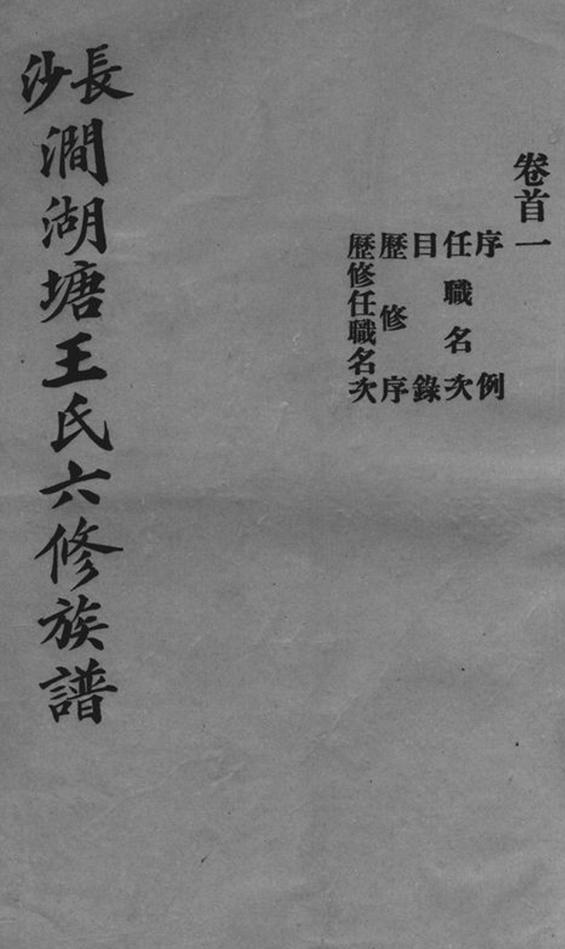 卷首一
序例
任職名次
目錄
歷修序
歷修任職名次
長沙澗湖塘王氏六修族譜